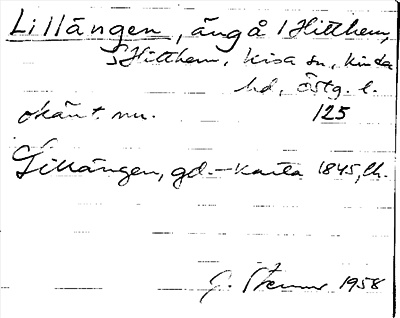 Lillängen, äng å 1 Hitthem,
S Hitthem, Kisa sn., Kinda
hd, Östg. l.
okänt. nu. 125
Lillängen, gd. – Karta 1845, Lh.
1958